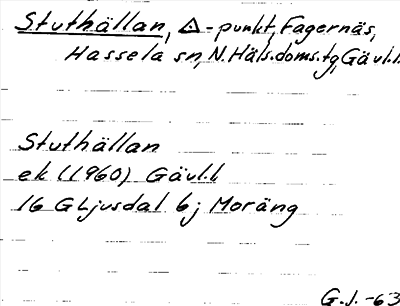 Stuthällan, △-punkt, Fagernäs,
Hassela sn, N. Häls. doms. tg, Gävl. l.
Stuthällan
ek (1960) Gävl. l
16 G Ljusdal 6j Moräng
G. J. -63